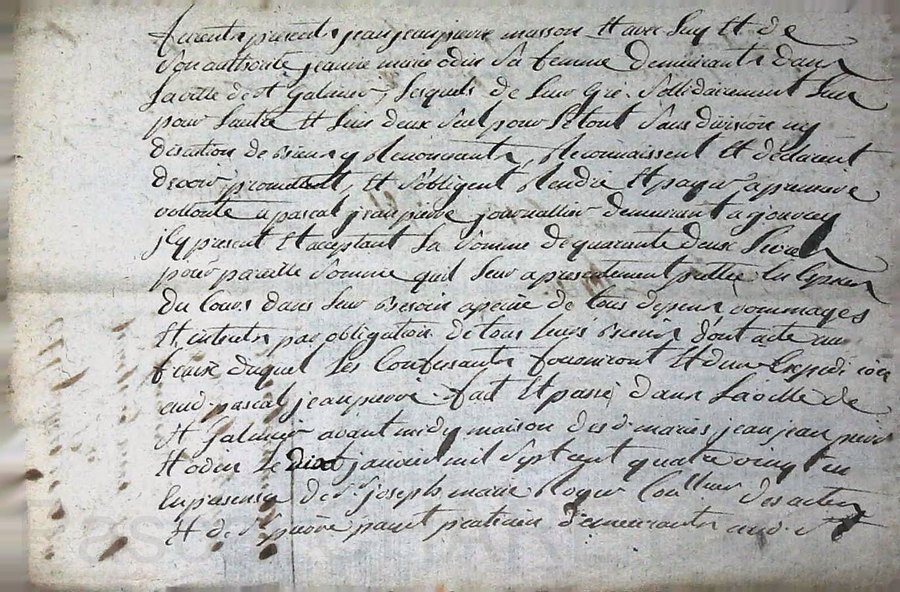 furents presents jean jeanpierre masson et avec luy et de
son authorité jeanne marie odin sa femme demeurants dans
la ville de st Galmier, lesquels de leur gré sollidairement l'un
pour l'autre et l'un deux seul pour le tout sans division ny
discution de biens y Renonceants, Reconnaissent et déclarent
devoir promettent, et s'obligent Rendre et payer a premiere
volonté a pascal jeanpierre journallier demeurant a
icy present et acceptant la somme de quarante deux livres
pour pareille somme quil leur a presentement prettée En Especes
du cours dans leur Besoin a peine de tous depens dommages
et interets par obligation de tous leurs Biens dont acte aux
fraix duquel les Confessants fourniront Et d'une Expedition
aud. pascal jeanpierre. fait Et passé dans la ville de
st Galmier avant midy maison desd. mariés jean jeanpierre
et odin le janvier mil sept cent quatre vingt un
En presence de sr. joseph marie Roger des actes
et de sr pierre praticien demeurants aud. st